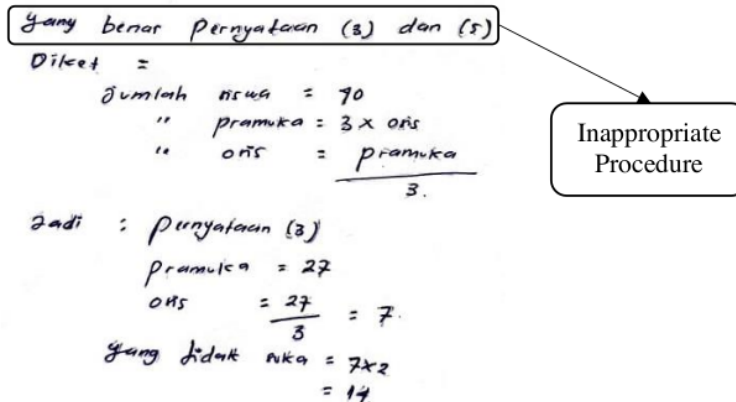 yang benar pernyataan (3) dan (5)
Diket =
Jumlah siswa = 40
" pramuka = 3 x osis
" osis = pramuka
3.
Jadi : pernyataan (3)
pramuka = 27
osis = 27 = 7.
3
yang tidak suka = 7x2
= 14
Inappropriate
Procedure